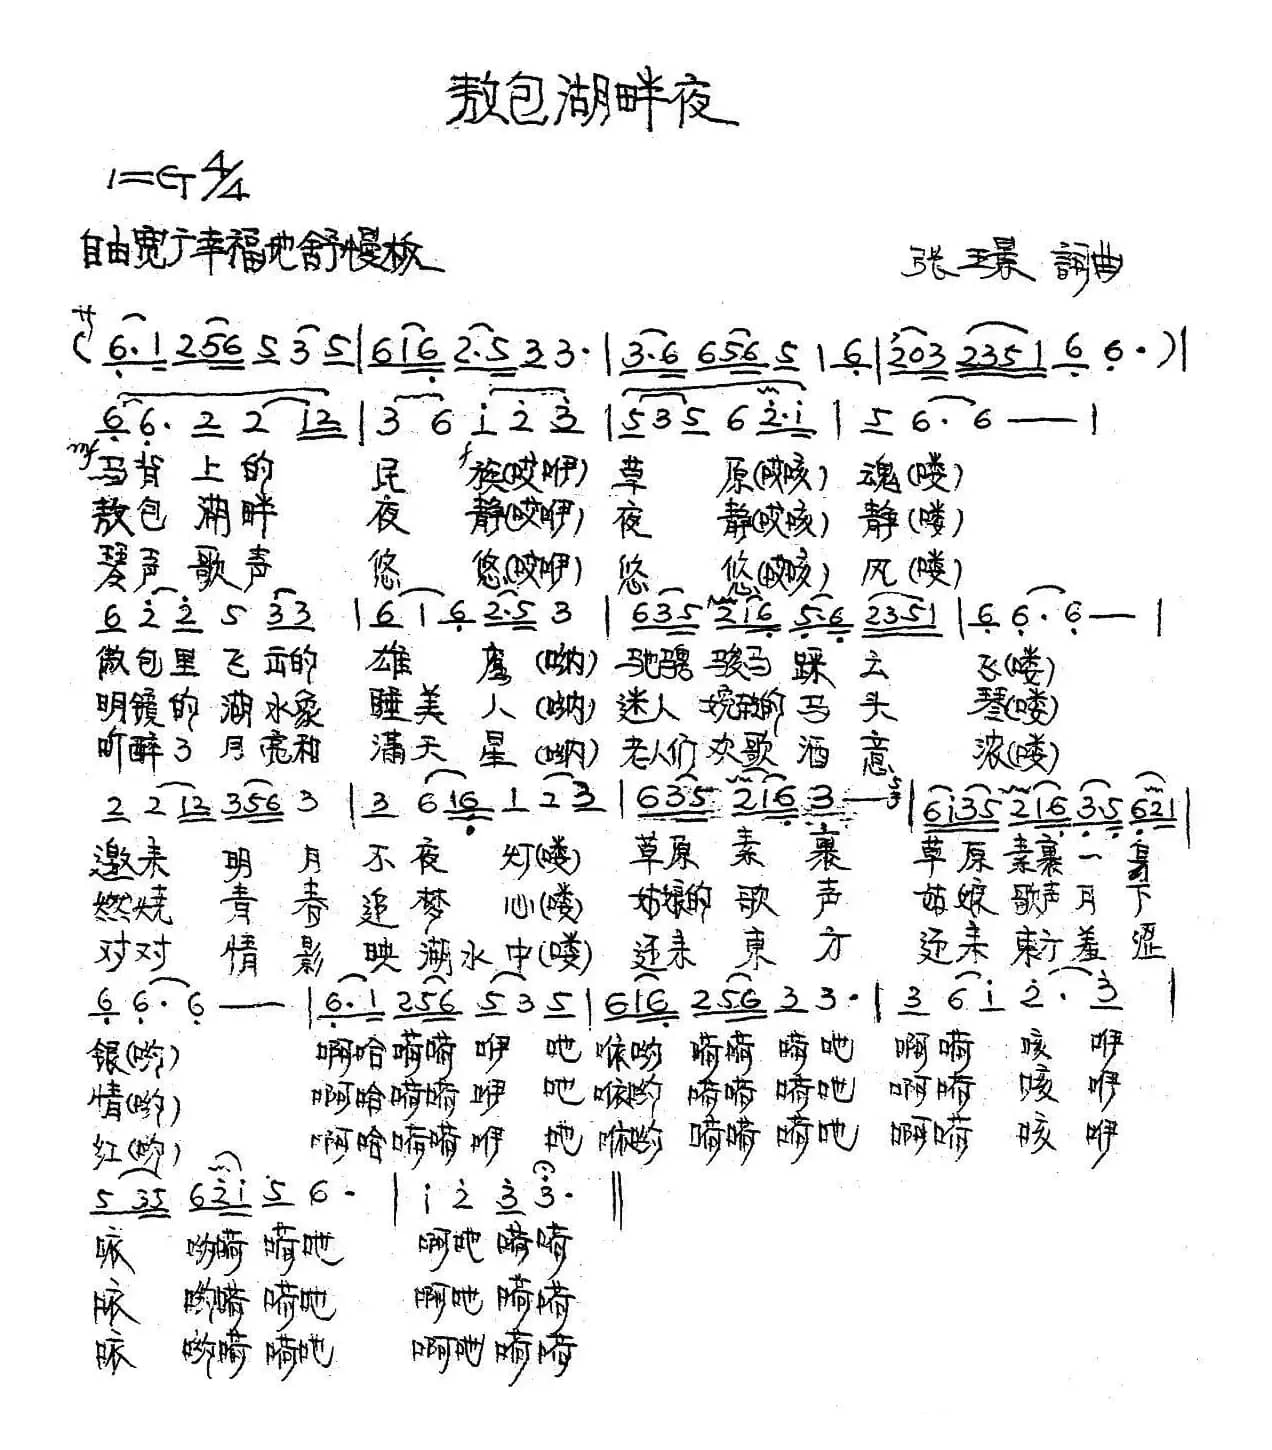 敖包湖畔夜
1=G 4/4
自由宽广幸福地舒慢板
张王景 詞曲
(6·1 256 5 35|616 2·5 3 3·|3·6 656 5 1 6|203 2351 6 6·)|
6 6· 2 2 12|3 6 i 2 3|535 6 2·i|5 6· 6 —|
mf 马背上的 民 f 族(哎咿) 草 原(哎咳) 魂(喽)
敖包湖畔 夜 静(哎咿) 夜 静(哎咳) 静(喽)
琴声歌声 悠 悠(哎咿) 悠 悠(哎咳) 风(喽)
6 2 2 5 33|6 1 6 2·5 3|635 216 5·6 2351|6 6· 6 —|
敖包里飞出的 雄 鹰(呐) 驰骋骏马踩云 飞(喽)
明镜的湖水象 睡美人(呐) 迷人婉转的马头 琴(喽)
听醉了月亮和 满天星(呐) 老人们欢歌酒意 浓(喽)
2 2 12 356 3|3 6 16 1 2 3|635 216 3 —|6i35 216 3·5 621|
邀来明月不夜 灯(喽) 草原素裹 草原素裹一身
燃烧青春追梦 心(喽) 姑娘的歌声 姑娘歌声月下
对对情影映湖水中(喽) 还来東方 还来東方羞涩
6 6· 6 —|6·1 256 5 3 5|616 256 3 3·|3 6 i 2· 3|
银(哟) 啊哈嗬嗬咿吔 喉哟嗬嗬嗬吔 啊嗬咳咿
情(哟) 啊哈嗬嗬咿吔 喉哟嗬嗬嗬吔 啊嗬咳咿
红(哟) 啊哈嗬嗬咿吔 喉哟嗬嗬嗬吔 啊嗬咳咿
5 35 62i 5 6·|i 2 3 3·‖
哟嗬嗬吔 啊吔嗬嗬
哟嗬嗬吔 啊吔嗬嗬
哟嗬嗬吔 啊吔嗬嗬